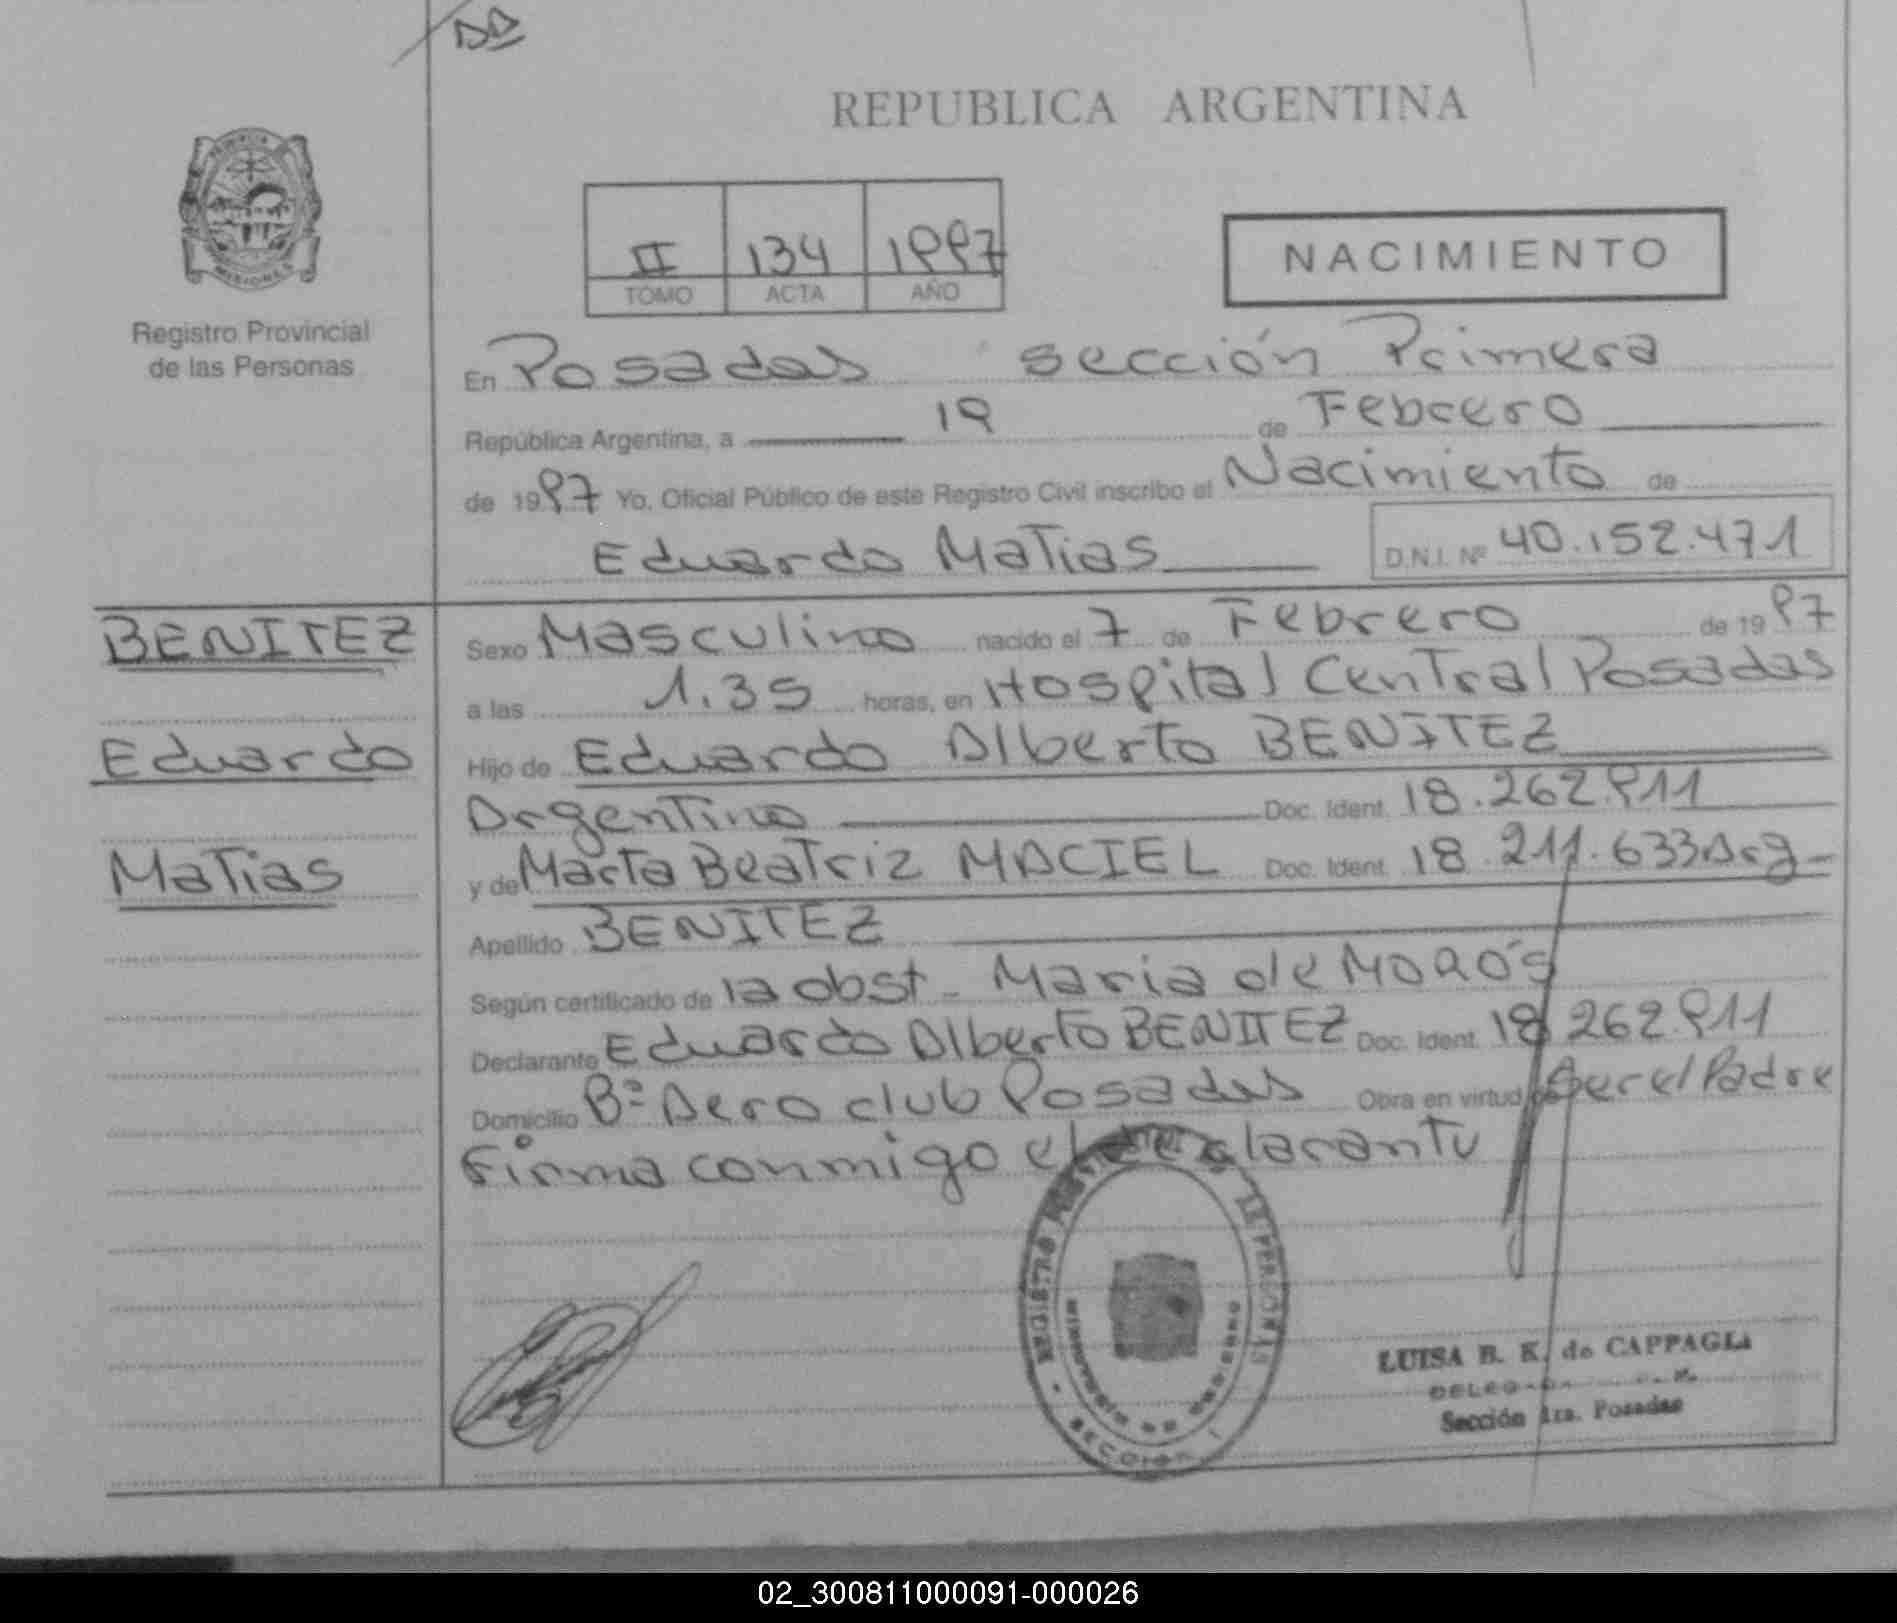 REPUBLICA ARGENTINA
II 134 1997
TOMO ACTA AÑO
NACIMIENTO
MISIONES
Registro Provincial
de las Personas
En Posadas sección Primera
República Argentina, a 19 de Febrero
de 1997 Yo, Oficial Público de este Registro Civil inscribo el Nacimiento de
Eduardo Matias D.N.I. Nº 40.152.471
BENITEZ
Eduardo
Matias
Sexo Masculino nacido el 7 de Febrero de 1997
a las 1.35 horas, en Hospital Central Posadas
Hijo de Eduardo Alberto BENITEZ
Argentino Doc. Ident. 18.262.911
y de Marta Beatriz MACIEL Doc. Ident. 18.211.633 Arg
Apellido BENITEZ
Según certificado de la obst. Maria de
Declarante Eduardo Alberto BENITEZ Doc. Ident. 18.262.911
Domicilio Bº Aero club Posadas Obra en virtud de Ser el Padre
Firma conmigo el declarante
REGISTRO DE LAS PERSONAS
SECCION 1
LUISA B. K. de CAPPAGLI
Sección 1ra. Posadas
02_300811000091-000026